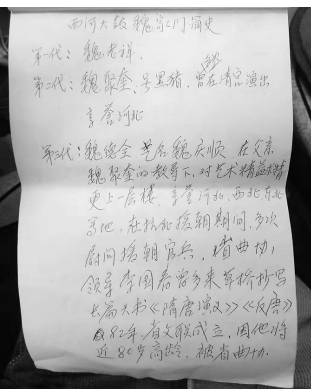 西河大鼓魏家门简史
第一代：魏老祥，
第二代：魏聚奎，号黑猪，曾在清宫演出
享誉河北
第三代：魏德全 艺名魏庆顺 在父亲
魏聚奎的教导下，对艺术精益求精
更上一层楼，享誉河北、西北、东北
等地，在抗美援朝期间，多次
慰问援朝官兵，省曲协，
领导李国春曾多来草桥抄写
长篇大书《隋唐演义》《反唐》
82年，省文联成立，因他将
近80岁高龄，被省曲协